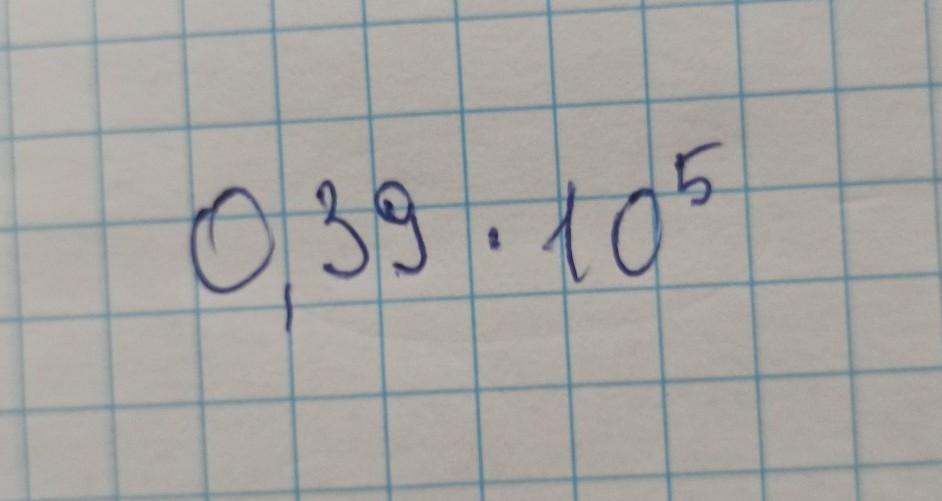 0,39 · 10⁵